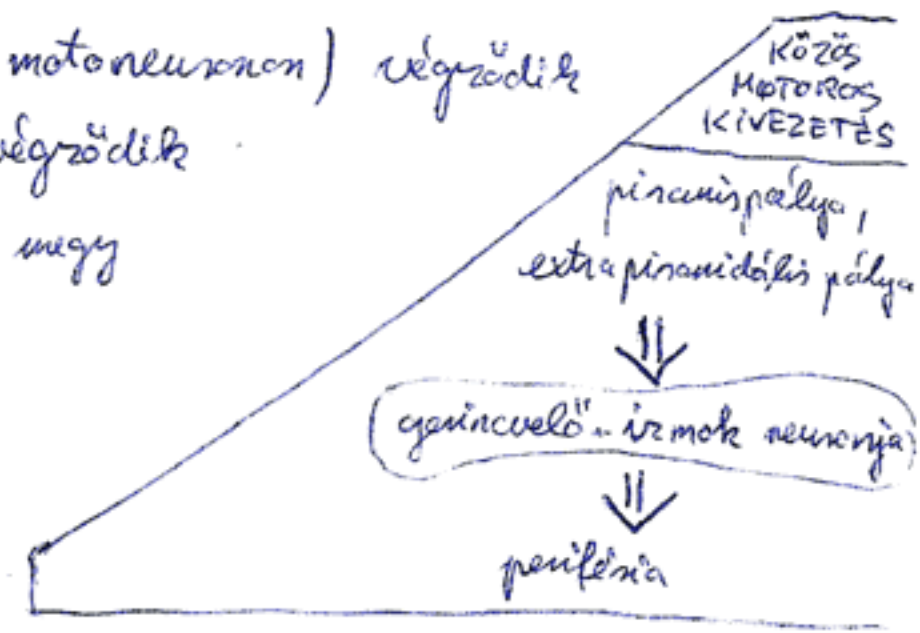 motoneuronon) végződik
végződik
megy
KÖZÖS
MOTOROS
KIVEZETÉS
piramispálya,
extrapiramidális pálya
gerincvelő - izmok neuronja
periféria